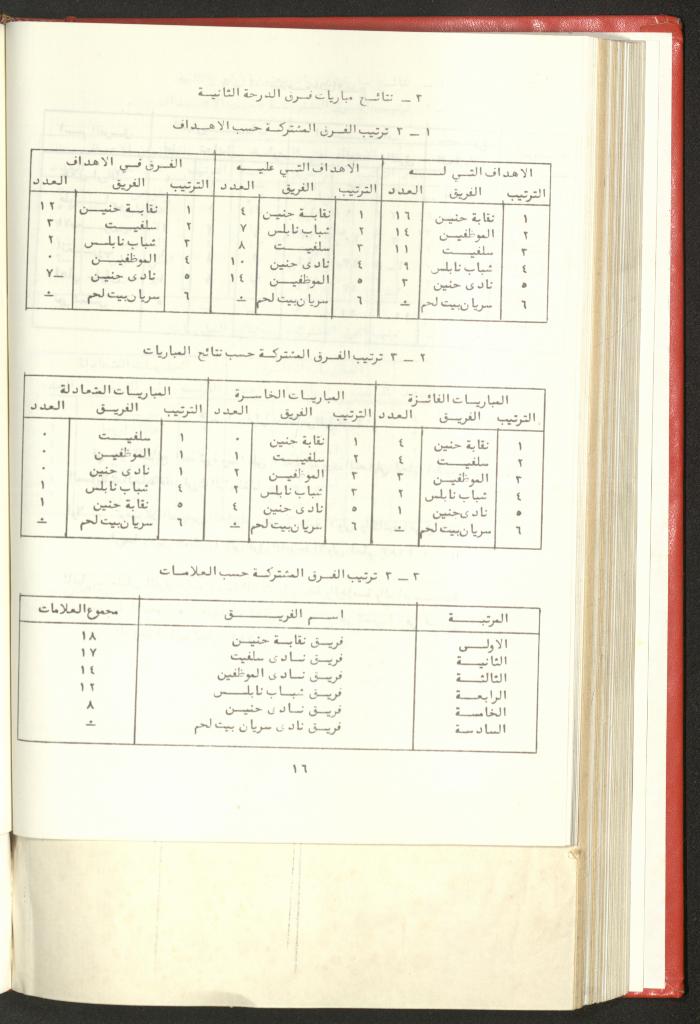 ٣ – نتائج مباريات فرق الدرجة الثانية
١ – ٣ ترتيب الفرق المشتركة حسب الاهداف
الاهداف التي له الاهداف التي عليه الفرق في الاهداف
الترتيب الفريق العدد الترتيب الفريق العدد الترتيب الفريق العدد
١ نقابة حنين ١٦ ١ نقابة حنين ٤ ١ نقابة حنين ١٢
٢ الموظفين ١٤ ٢ شباب نابلس ٧ ٢ سلفيت ٣
٣ سلفيت ١١ ٣ سلفيت ٨ ٣ شباب نابلس ٢
٤ شباب نابلس ٩ ٤ نادى حنين ١٠ ٤ الموظفين ٠
٥ نادى حنين ٣ ٥ الموظفين ١٤ ٥ نادى حنين –٧
٦ سريان بيت لحم ٦ سريان بيت لحم ٦ سريان بيت لحم
٢ – ٣ ترتيب الفرق المشتركة حسب نتائج المباريات
المباريات الفائزة المباريات الخاسرة المباريات المتعادلة
الترتيب الفريق العدد الترتيب الفريق العدد الترتيب الفريق العدد
١ نقابة حنين ٤ ١ نقابة حنين ٠ ١ سلفيت ٠
٢ سلفيت ٤ ٢ سلفيت ١ ١ الموظفين ٠
٣ الموظفين ٣ ٣ الموظفين ٢ ١ نادى حنين ٠
٤ شباب نابلس ٢ ٣ شباب نابلس ٢ ٤ شباب نابلس ١
٥ نادى حنين ١ ٥ نادى حنين ٤ ٥ نقابة حنين ١
٦ سريان بيت لحم ٦ سريان بيت لحم ٦ سريان بيت لحم
٣ – ٣ ترتيب الفرق المشتركة حسب العلامات
المرتبة اسم الفريق مجموع العلامات
الاولى فريق نقابة حنين ١٨
الثانية فريق نادى سلفيت ١٧
الثالثة فريق نادى الموظفين ١٤
الرابعة فريق شباب نابلس ١٢
الخامسة فريق نادى حنين ٨
السادسة فريق نادى سريان بيت لحم
١٦